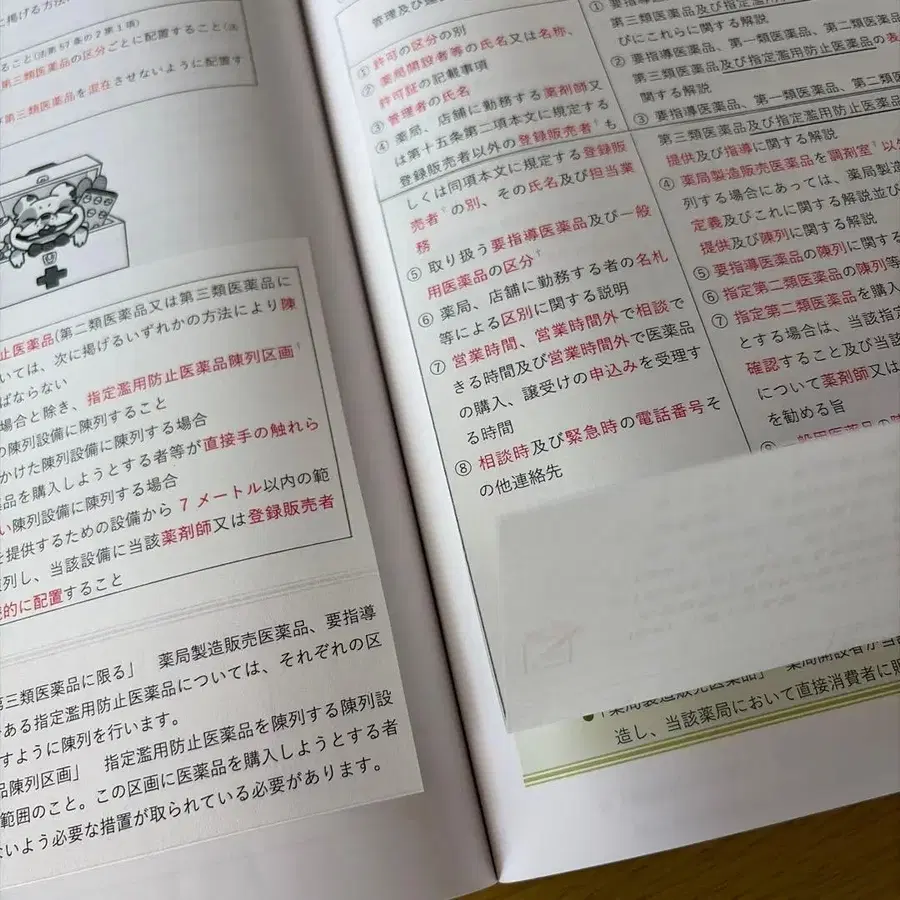 に掲げる方法に
ること(法第57条の2第1項)
第三類医薬品の区分ごとに配置すること(法
第三類医薬品を混在させないように配置す
止医薬品(第二類医薬品又は第三類医薬品に
いては、次に掲げるいずれかの方法により陳
ばならない
場合と除き、指定濫用防止医薬品陳列区画†
の陳列設備に陳列すること
かけた陳列設備に陳列する場合
品を購入しようとする者等が直接手の触れら
い陳列設備に陳列する場合
を提供するための設備から7メートル以内の範
列し、当該設備に当該薬剤師又は登録販売者
的に配置すること
第三類医薬品に限る」 薬局製造販売医薬品、要指導
である指定濫用防止医薬品については、それぞれの区
すように陳列を行います。
品陳列区画」 指定濫用防止医薬品を陳列する陳列設
範囲のこと。この区画に医薬品を購入しようとする者
ないよう必要な措置が取られている必要があります。
管理及び運
① 許可の区分の別
② 薬局開設者等の氏名又は名称、
許可証の記載事項
③ 管理者の氏名
④ 薬局、店舗に勤務する薬剤師又
は第十五条第二項本文に規定する
登録販売者以外の登録販売者†も
しくは同項本文に規定する登録販
売者†の別、その氏名及び担当業
務
⑤ 取り扱う要指導医薬品及び一般
用医薬品の区分†
⑥ 薬局、店舗に勤務する者の名札
等による区別に関する説明
⑦ 営業時間、営業時間外で相談で
きる時間及び営業時間外で医薬品
の購入、譲受けの申込みを受理す
る時間
⑧ 相談時及び緊急時の電話番号そ
の他連絡先
① 要指導医薬品、
第三類医薬品及び指定濫用
びにこれらに関する解説
② 要指導医薬品、第一類医薬品、第二類医薬
第三類医薬品及び指定濫用防止医薬品の表
関する解説
③ 要指導医薬品、第一類医薬品、第二類
第三類医薬品及び指定濫用防止医薬品
提供及び指導に関する解説
④ 薬局製造販売医薬品を調剤室†以外
列する場合にあっては、薬局製造
定義及びこれに関する解説並び
提供及び陳列に関する解説
⑤ 要指導医薬品の陳列に関する
⑥ 指定第二類医薬品の陳列等
⑦ 指定第二類医薬品を購入
とする場合は、当該指定
確認すること及び当該
について薬剤師又は
を勧める旨
⑧ 一般用医薬品の
●「薬局製造販売医薬品」 薬局開設者が当該
造し、当該薬局において直接消費者に販